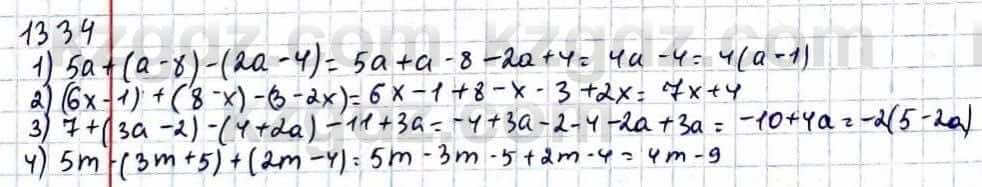 1334
1) 5a+(a-8)-(2a-4)= 5a+a-8-2a+4= 4a-4= 4(a-1)
2) (6x-1)+(8-x)-(3-2x)= 6x-1+8-x-3+2x= 7x+4
3) 7+(3a-2)-(4+2a)-11+3a= -4+3a-2-4-2a+3a= -10+4a= -2(5-2a)
4) 5m-(3m+5)+(2m-4)= 5m-3m-5+2m-4= 4m-9